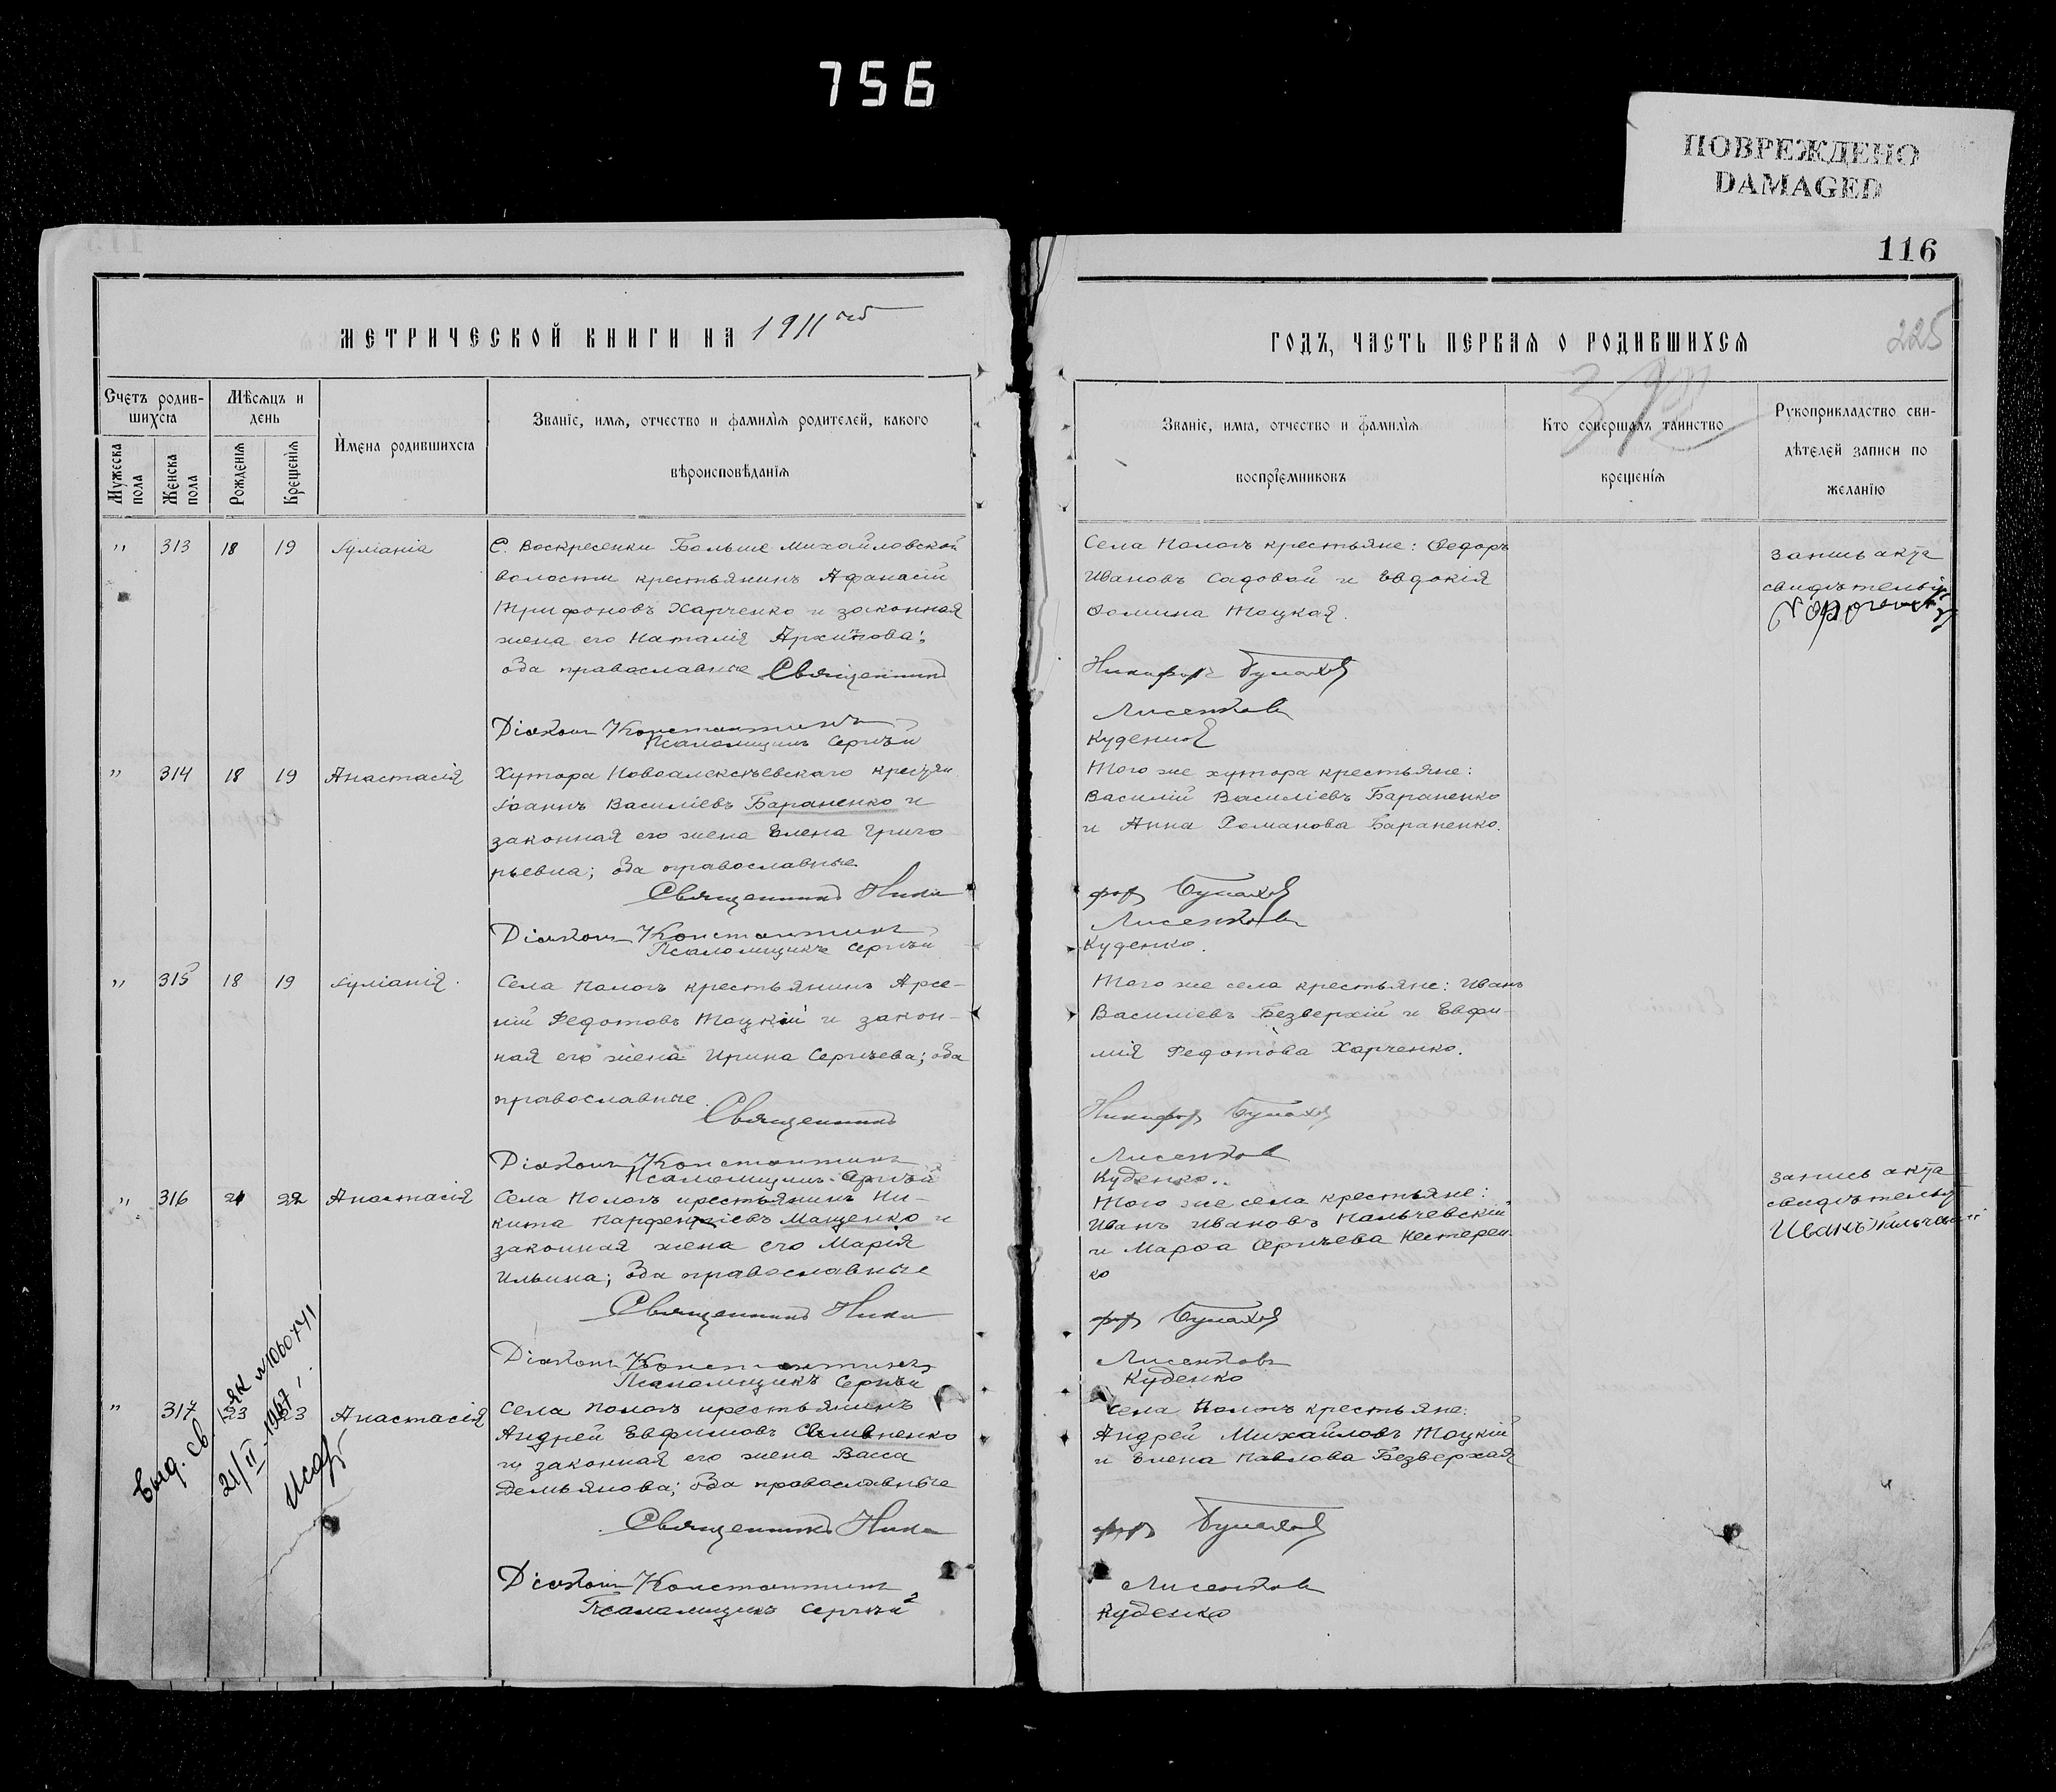 756
ПОВРЕЖДЕНО
DAMAGED
116
225
МЕТРИЧЕСКОЙ КНИГИ НА 1911
ГОДЪ, ЧАСТЬ ПЕРВАЯ О РОДИВШИХСЯ
Счетъ родив-
шихся
Мужеска пола
Женска пола
Мѣсяцъ и
день
Рожденія
Крещенія
Имена родившихся
Званіе, имя, отчество и фамилія родителей, какого
вѣроисповѣданія
Званіе, имя, отчество и фамилія
воспріемниковъ
Кто совершалъ таинство
крещенія
Рукоприкладство сви-
дѣтелей записи по
желанію
" 313 18 19 Іуліанія
С. Воскресенки Больше Михайловской
волости крестьянинъ Афанасій
Трифоновъ Харченко и законная
жена его Наталія Архипова;
оба православные Священникъ
Діаконъ Константинъ
Псаломщикъ Сергѣй
Села Пологъ крестьяне: Ѳедоръ
Ивановъ Садовой и Евдокія
Ѳомина Тоцкая.
Никифоръ
Лисенковъ
Куденко
запись акта
свидѣтель
" 314 18 19 Анастасія
Хутора Новоалексѣевскаго крестьян
Іоаннъ Василіевъ Бараненко и
законная его жена Елена Григо
рьевна; оба православные
Священникъ Ники
Діаконъ Константинъ
Псаломщикъ Сергѣй
Того же хутора крестьяне:
Василій Василіевъ Бараненко
и Анна Романова Бараненко.
форъ
Лисенковъ
Куденко.
" 315 18 19 Іуліанія.
Села Пологъ крестьянинъ Арсе-
ній Федотовъ Тоцкій и закон-
ная его жена Ирина Сергѣева; оба
православные.
Священникъ
Діаконъ Константинъ
Псаломщикъ Сергѣй
Того же села крестьяне: Иванъ
Василіевъ Безверхій и Евфи-
мія Федотова Харченко.
Никифоръ
Лисенковъ
Куденко.
" 316 21 22 Анастасія
Села Пологъ крестьянинъ Ни-
кита Парфентіевъ Мащенко и
законная жена его Марія
Ильина; оба православные
Священникъ Ники
Діаконъ Константинъ
Псаломщикъ Сергѣй
Того же села крестьяне:
Иванъ Ивановъ Пальчевскій
и Марфа Сергѣева Нестерен
ко
форъ
Лисенковъ
Куденко
запись акта
свидѣтель
Иванъ Пальчевскій
" 317 23 23 Анастасія
Села Пологъ крестьянинъ
Андрей Евфимовъ
и законная его жена Васса
Демьянова; оба православные
Священникъ Ники
Діаконъ Константинъ
Псаломщикъ Сергѣй
Села Пологъ крестьяне:
Андрей Михайловъ Тоцкій
и Елена Павлова Безверхая
форъ
Лисенковъ
Куденко
Выд. св. № 1060741
21/II-1967